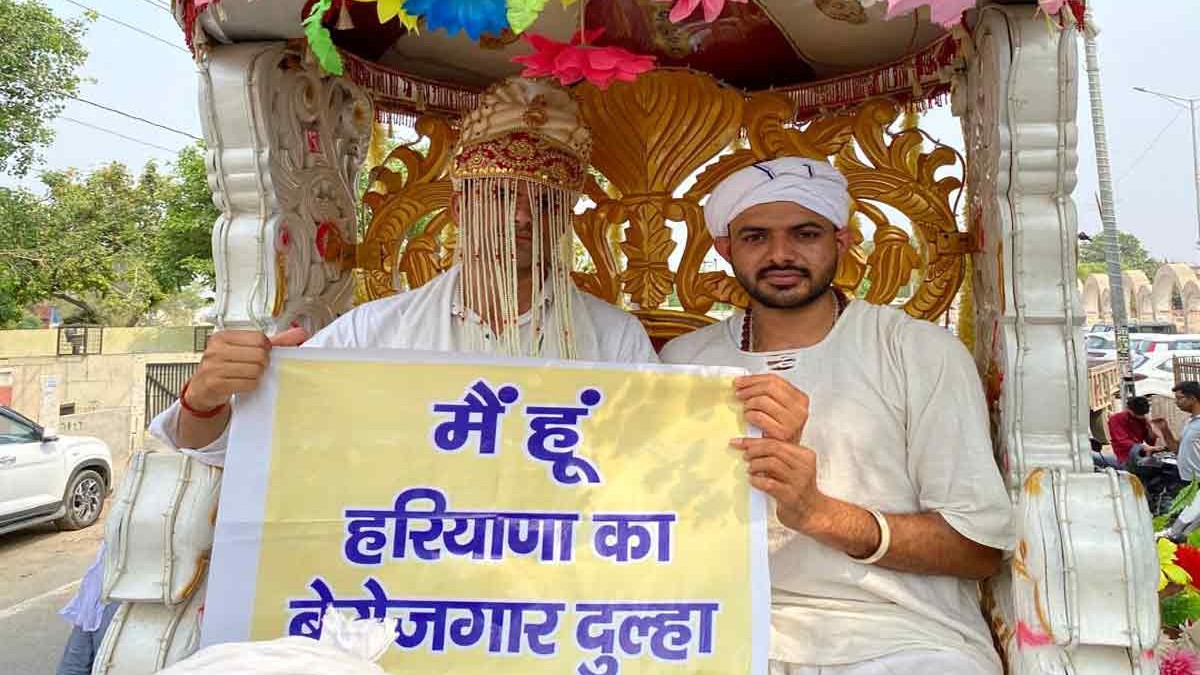 मैं हूं
हरियाणा का
बेरोजगार दुल्हा